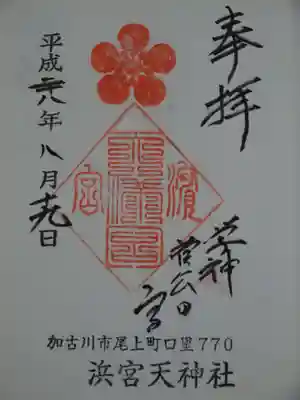 奉拝
天神
菅公の
宮
濱
宮
平成二八年八月十九日
加古川市尾上町口里770
浜宮天神社